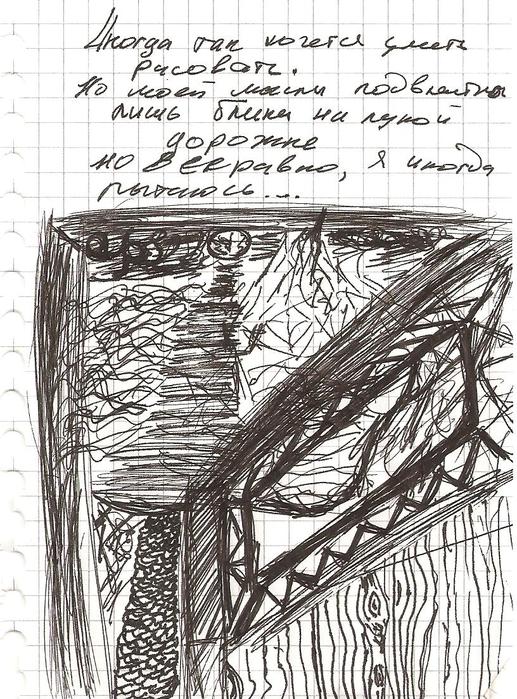 Иногда так хочется уметь
рисовать.
Но моей мысли подвластны
лишь блики на лунной
дорожке
но всё равно, я иногда
пытаюсь...